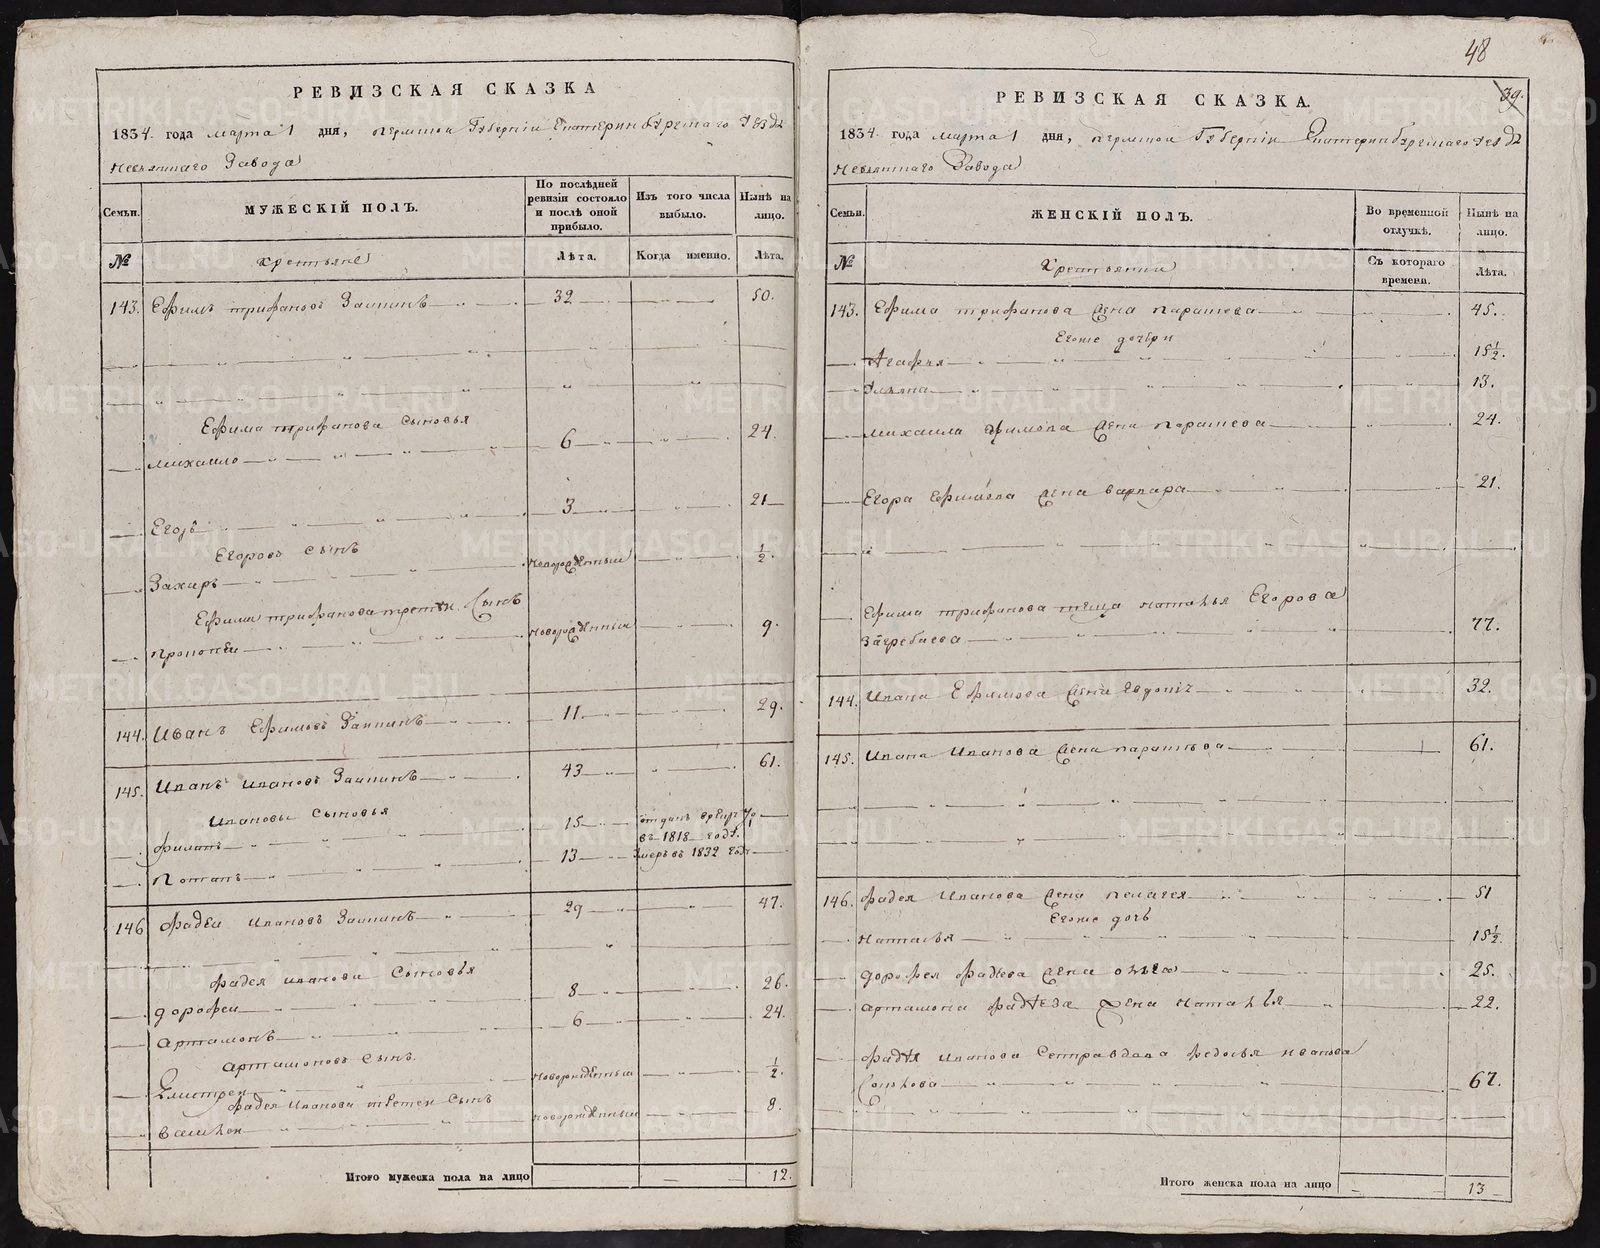 48
39.
РЕВИЗСКАЯ СКАЗКА
1834. года марта 1 дня, пермской Губерніи Екатеринбургскаго Уезда
Невьянскаго Завода
Семьи.
МУЖЕСКІЙ ПОЛЪ.
По послѣдней ревизіи состояло и послѣ оной прибыло.
Изъ того числа выбыло.
Нынѣ на лицо.
№
Крестьяне
Лѣта.
Когда именно.
Лѣта.
143. Ефимъ трифановъ 32 50.
Ефима трифанова сыновья
михаило 6 24.
Егоръ 3 21
Егоровъ сынъ
Захаръ новорожденный ½
Ефима трифанова третей сынъ
Прокопей новорожденный 9.
144. Иванъ Ефимовъ 11. 29.
145. Иванъ Ивановъ 43 61.
Ивановы сыновья
филипъ 15 отданъ врекруты
въ 1818 годѣ.
Потапъ 13 Умеръ въ 1832 годѣ
146 Фадей Ивановъ 29 47.
Фадея иванова Сыновья
дорофеи 8 26.
Артамонъ 6 24.
Артамоновъ сынъ
новорожденный ½
Фадея Иванова третей сынъ
новорожденный 8.
Итого мужеска пола на лицо 12.
РЕВИЗСКАЯ СКАЗКА.
1834. года марта 1 дня, пермской Губерніи Екатеринбургскаго Уезда
Невьянскаго Завода
Семьи.
ЖЕНСКІЙ ПОЛЪ.
Во временной отлучкѣ.
Нынѣ на лицо.
№
Крестьянки
Съ котораго времени.
Лѣта.
143. Ефима трифанова жена парасковья 45.
Егоже дочери
Агафья 15½.
Ульяна 13.
михаила Ефимова жена парасковья 24.
Егора Ефимова жена варвара 21.
Ефима трифанова теща наталья Егорова
Загребаева 77.
144. Ивана Ефимова жена Евдокія 32.
145. Ивана Иванова жена парасковья 61.
146. Фадея Иванова жена пелагея 51
Егоже дочь
Наталья 15½.
дорофея фадеева жена 25.
артамона фадѣева жена наталья 22.
фадѣя Иванова федосья иванова
67.
Итого женска пола на лицо 13
METRIKI.GASO-URAL.RU